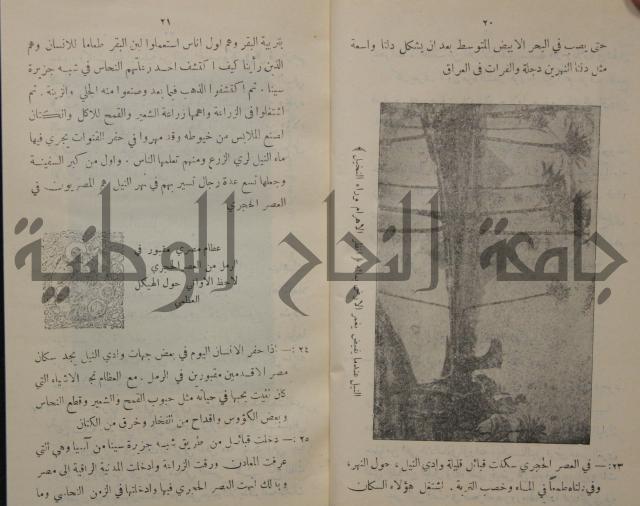 ٢٠
حتى يصب في البحر الابيض المتوسط بعد ان يشكل دلتا واسعة
مثل دلتا النهرين دجلة والفرات في العراق
النيل عندما يفيض يغمر الارض
الاهرام وراء النخيل
٢٣ :— في العصر الحجري سكنت قبائل قليلة وادي النيل ، حول النهر ،
وفي دلتاه طمعاً في الماء وخصب التربة . اشتغل هؤلاء السكان
٢١
بتربية البقر وهم اول اناس استعملوا لبن البقر طعاما للانسان وهم
الذين رأينا كيف اكتشف احد رعاتهم النحاس في شبه جزيرة
سينا . ثم اكتشفوا الذهب فيما بعد وصنعوا منه الحلي والزينة . ثم
اشتغلوا في الزراعة واهمها زراعة الشعير والقمح للاكل والكتان
لصنع الملابس من خيوطه وقد مهروا في حفر القنوات يجري فيها
ماء النيل لري الزرع ومنهم تعلمها الناس . واول من كبر السفينة
وجعلها تسع عدة رجال تسير بهم في نهر النيل هم المصريون في
العصر الحجري
عظام مصري مقبور في
الرمل من العصر الحجري
لاحظ الأواني حول الهيكل
العظمي
٢٤ :— اذا حفر الانسان اليوم في بعض جهات وادي النيل يجد سكان
مصر الاقدمين مقبورين في الرمل . مع العظام تجد الاشياء التي
كان الميت يحبها في حياته مثل حبوب القمح والشعير وقطع النحاس
وبعض الكؤوس واقداح من الفخار وخرق من الكتان
٢٥ :— دخلت قبائل من طريق شبه جزيرة سينا من آسيا وهي التي
عرفت المعادن ورقت الزراعة وادخلت المدنية الراقية الى مصر
وبذلك انتهت العصر الحجري فيها وادخلتها في الزمن النحاسي وما
جامعة النجاح الوطنية